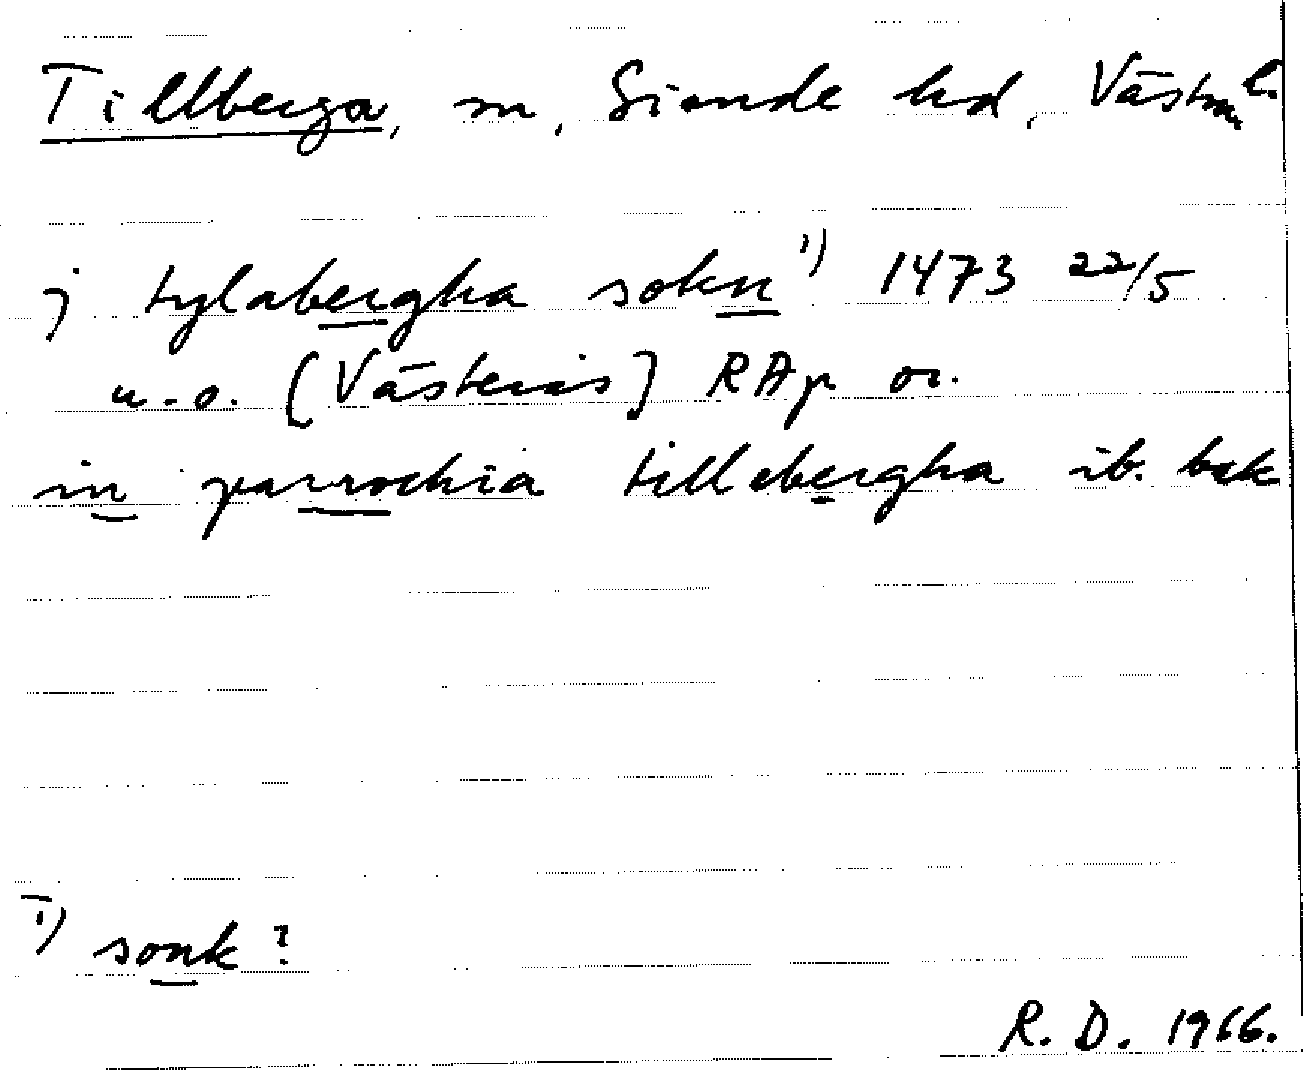 Tillberga, sn, Siende hd, Västm l.
j tylabergha sokn 1) 1473 22/5
u.o. [Västerås] RAp or.
in parrochia tillebergha ib. bak
1) sonk?
R. D. 1966.